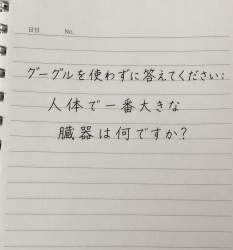 日付 No.
グーグルを使わずに答えてください:
人体で一番大きな
臓器は何ですか?